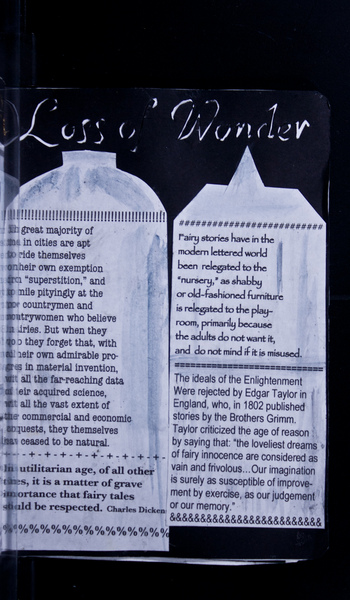 Loss of Wonder
!!!!!!!!!!!!!!!!!!!!!!!!!!!!!!!!!!!!!!!!
great majority of
in cities are apt
ride themselves
their own exemption
"superstition," and
mile pityingly at the
countrymen and
countrywomen who believe
But when they
they forget that, with
their own admirable pro-
in material invention,
all the far-reaching data
their acquired science,
all the vast extent of
commercial and economic
conquests, they themselves
have ceased to be natural.
- + - + - + - + - + - + - + - + -
utilitarian age, of all other
it is a matter of grave
importance that fairy tales
should be respected. Charles Dicken
%%%%%%%%%%%%%%%%%%%
##########################
Fairy stories have in the
modern lettered world
been relegated to the
"nursery," as shabby
or old-fashioned furniture
is relegated to the play-
room, primarily because
the adults do not want it,
and do not mind if it is misused.
==============================
The ideals of the Enlightenment
Were rejected by Edgar Taylor in
England, who, in 1802 published
stories by the Brothers Grimm.
Taylor criticized the age of reason
by saying that: "the loveliest dreams
of fairy innocence are considered as
vain and frivolous...Our imagination
is surely as susceptible of improve-
ment by exercise, as our judgement
or our memory."
&&&&&&&&&&&&&&&&&&&&&&&